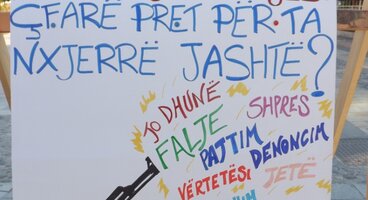 ÇFARË PRET PËR TA
NXJERRË JASHTË?
JO DHUNË
SHPRES
FALJE
PAJTIM
DENONCIM
VËRTETËSI
JETË